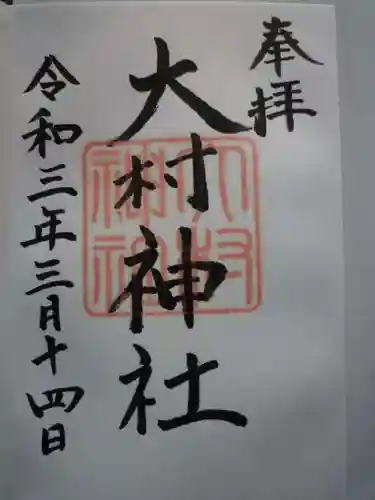 奉拝
大村神社
大村神社
令和三年三月十四日